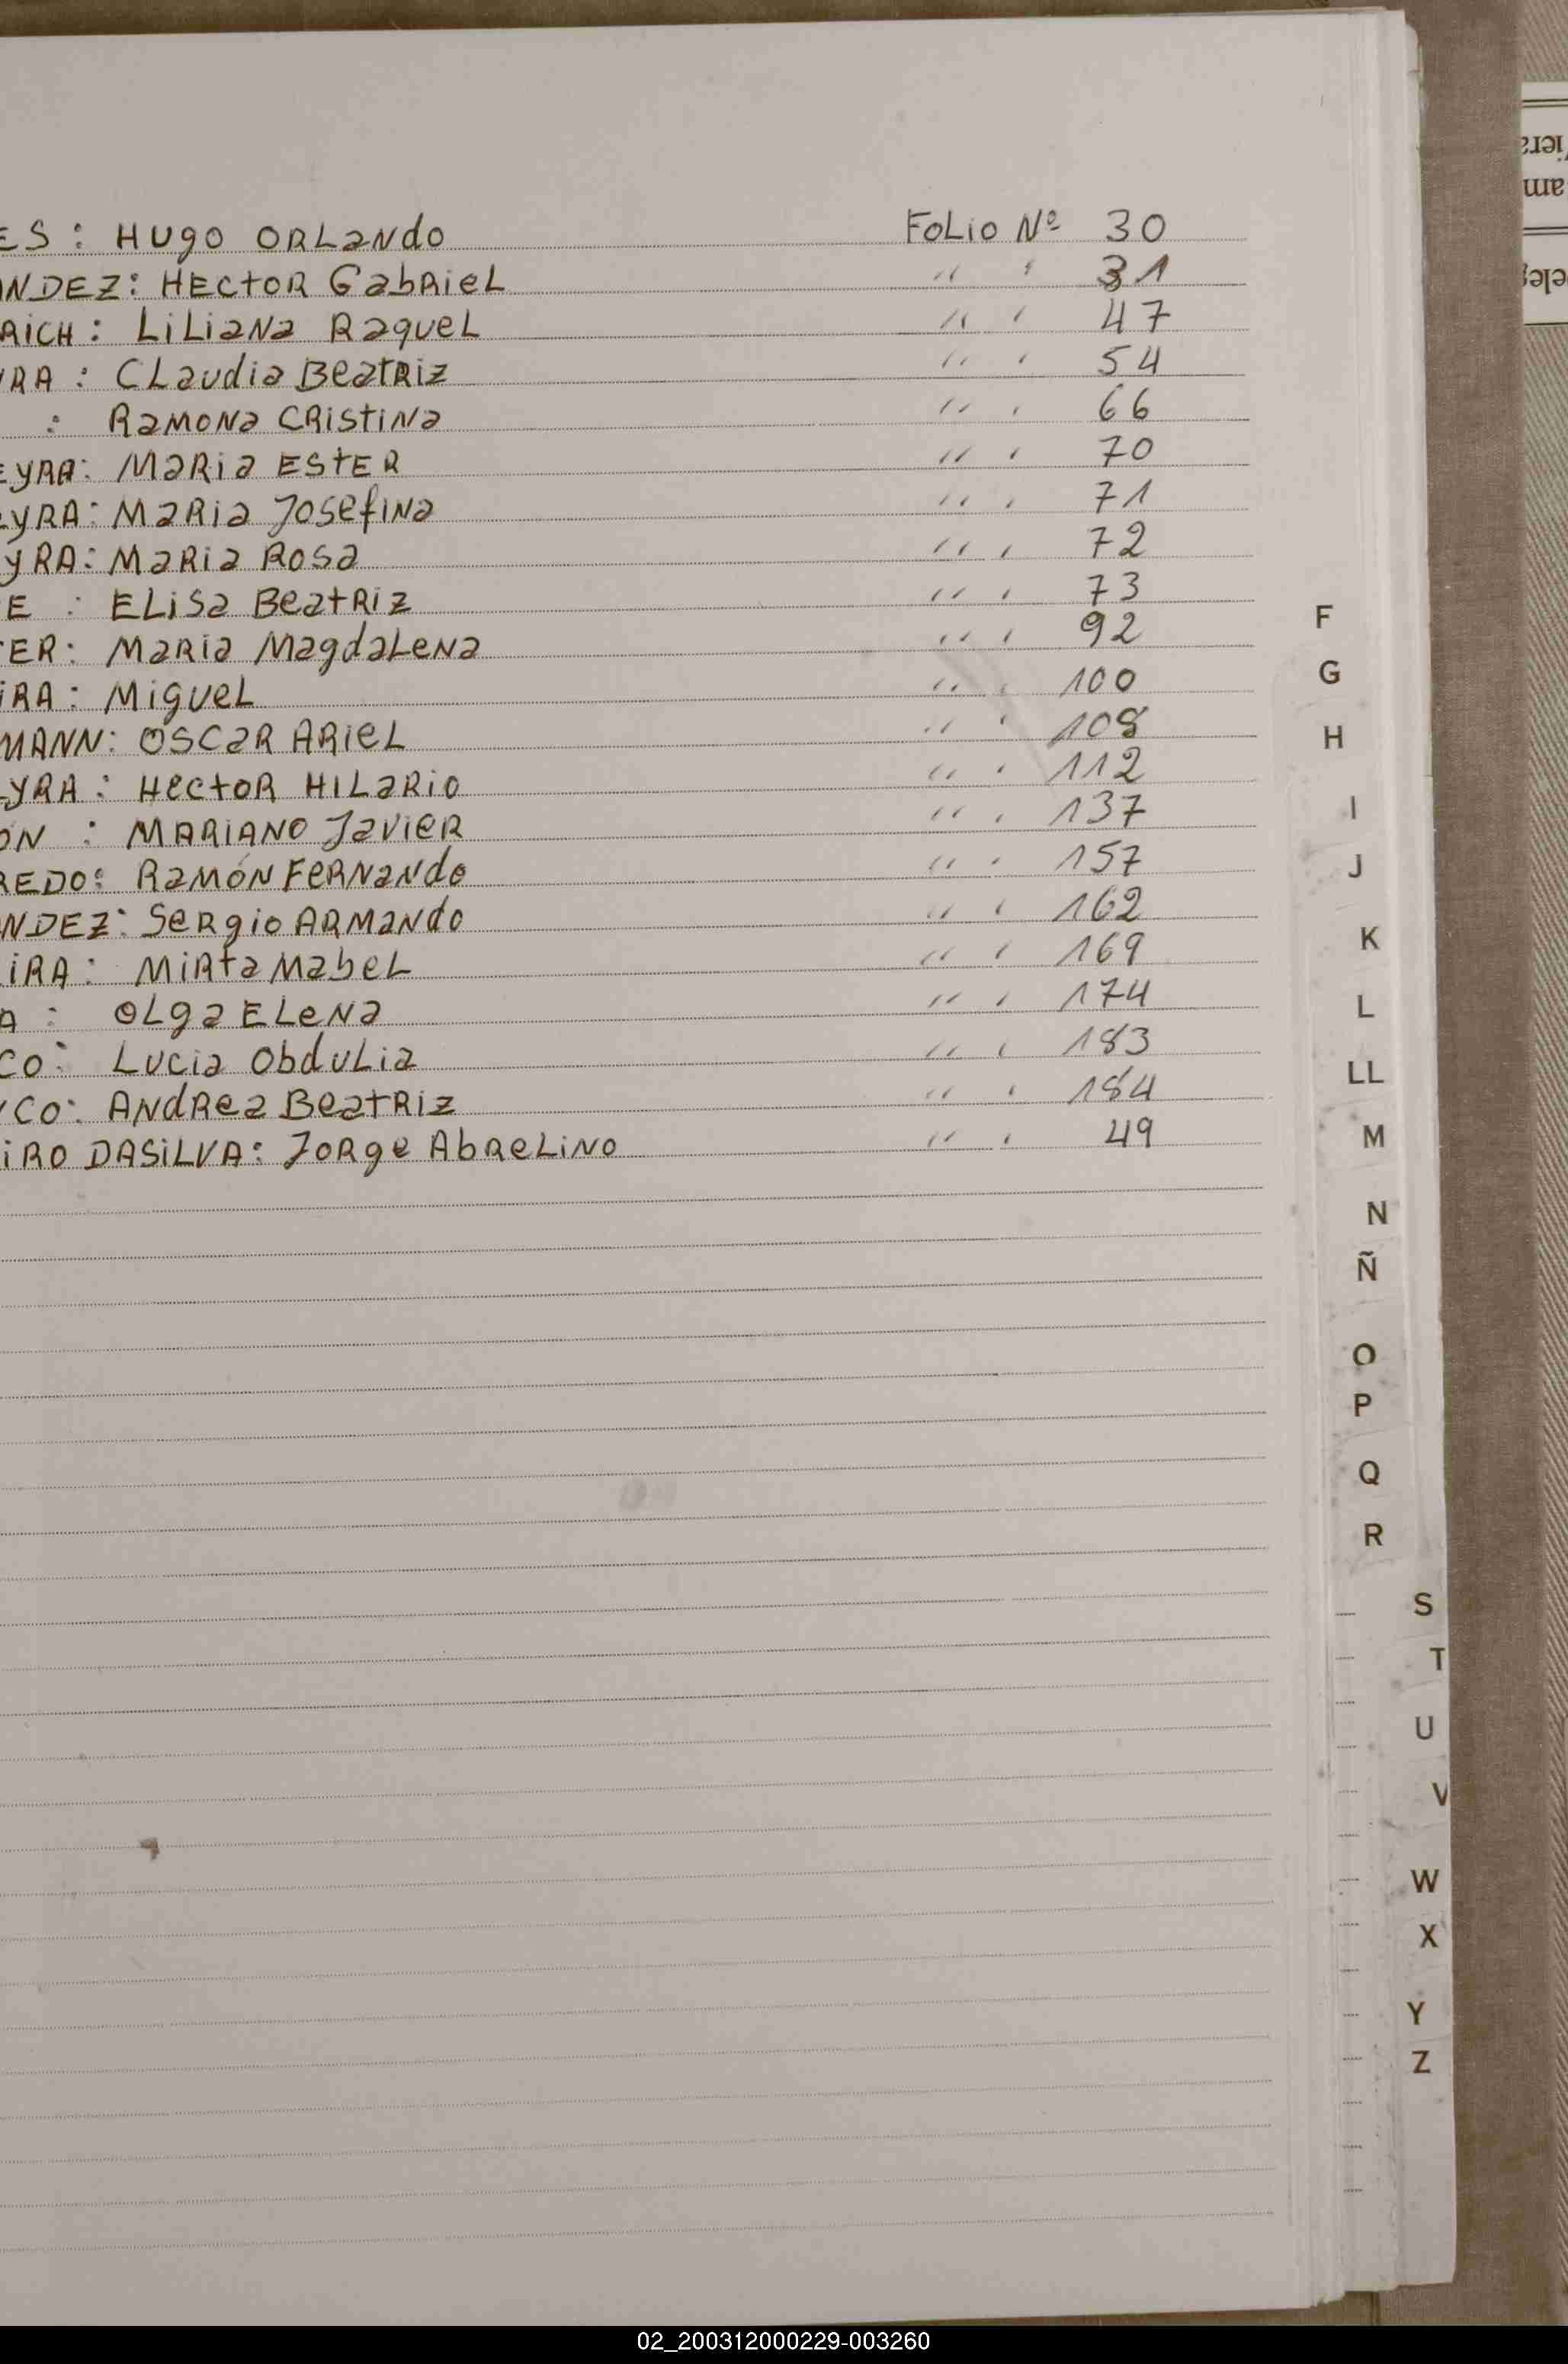 ES: Hugo Orlando Folio Nº 30
NDEZ: Hector Gabriel " " 31
RICH: Liliana Raquel " " 47
RA: Claudia Beatriz " " 54
: Ramona Cristina " " 66
EYRA: Maria Ester " " 70
YRA: Maria Josefina " " 71
YRA: Maria Rosa " " 72
E: Elisa Beatriz " " 73
ER: Maria Magdalena " " 92
IRA: Miguel " " 100
MANN: Oscar Ariel " " 108
YRA: Hector Hilario " " 112
ON: Mariano Javier " " 137
REDO: Ramón Fernando " " 157
NDEZ: Sergio Armando " " 162
IRA: Mirta Mabel " " 169
A: Olga Elena " " 174
CO: Lucia Obdulia " " 183
CO: Andrea Beatriz " " 184
IRO DASILVA: Jorge Abrelino " " 49
F
G
H
I
J
K
L
LL
M
N
Ñ
O
P
Q
R
S
T
U
V
W
X
Y
Z
02_200312000229-003260